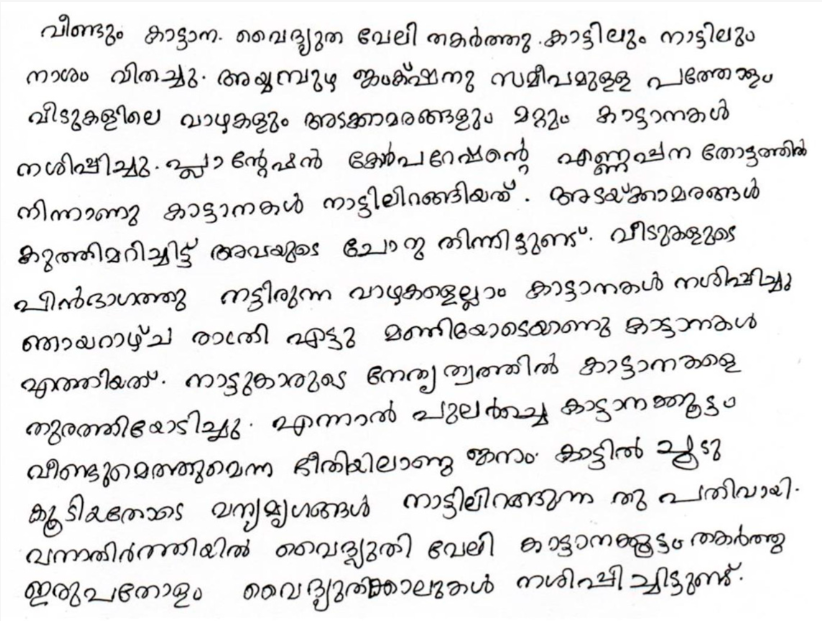 വീണ്ടും കാട്ടാന. വൈദ്യുത വേലി തകർത്തു. കാട്ടിലും നാട്ടിലും
നാശം വിതച്ചു. അയ്യമ്പുഴ ജംക്‌ഷനു സമീപമുള്ള പത്തോളം
വീടുകളിലെ വാഴകളും അടക്കാമരങ്ങളും മറ്റും കാട്ടാനകൾ
നശിപ്പിച്ചു. പ്ലാന്റേഷൻ കോർപറേഷന്റെ എണ്ണപ്പന തോട്ടത്തിൽ
നിന്നാണു കാട്ടാനകൾ നാട്ടിലിറങ്ങിയത്. അടയ്ക്കാമരങ്ങൾ
കുത്തിമറിച്ചിട്ട് അവയുടെ ചോറു തിന്നിട്ടുണ്ട്. വീടുകളുടെ
പിൻഭാഗത്തു നട്ടിരുന്ന വാഴകളെല്ലാം കാട്ടാനകൾ നശിപ്പിച്ചു
ഞായറാഴ്ച രാത്രി എട്ടു മണിയോടെയാണു കാട്ടാനകൾ
എത്തിയത്. നാട്ടുകാരുടെ നേതൃത്വത്തിൽ കാട്ടാനകളെ
തുരത്തിയോടിച്ചു. എന്നാൽ പുലർച്ചെ കാട്ടാനക്കൂട്ടം
വീണ്ടുമെത്തുമെന്ന ഭീതിയിലാണു ജനം. കാട്ടിൽ ചൂടു
കൂടിയതോടെ വന്യമൃഗങ്ങൾ നാട്ടിലിറങ്ങുന്ന തു പതിവായി.
വനാതിർത്തിയിൽ വൈദ്യുതി വേലി കാട്ടാനക്കൂട്ടം തകർത്തു
ഇരുപതോളം വൈദ്യുതിക്കാലുകൾ നശിപ്പിച്ചിട്ടുണ്ട്.